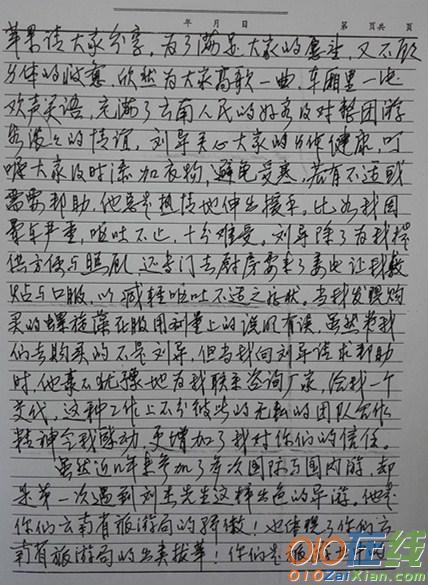 年 月 日 第 页共 页
苹果请大家分享。为了满足大家的愿望，又不顾
身体的疲惫，欣然为大家高歌一曲，车厢里一边
欢声笑语，充满了云南人民的好客及对整团游
客深深的情谊，刘导关心大家的身体健康，叮
嘱大家及时添加衣物，避免受寒，若有不适或
需要帮助，他总是热情地伸出援手。比如我因
晕车严重，呕吐不止，十分难受。刘导除了为我提
供方便与照顾，还专门去厨房要来了姜也让我敷
贴与口服，以减轻呕吐不适之症状。当我发现购
买的螺旋藻在服用剂量上的说明有误，虽然带我
们去购买的不是刘导，但当我向刘导请求帮助
时，他毫不犹豫地为我联系咨询厂家，给我一个
交代，这种工作上不分彼此的无私的团队合作
精神令我感动，更增加了我对你们的信任。
虽然近几年来参加了多次国际与国内游，却
是第一次遇到刘杰先生这样出色的导游。他是
你们云南省旅游局的骄傲！也体现了你们云
南省旅游局的出类拔萃！你们是
010在线
010zaiXian.com